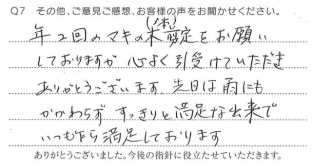 Q7 その他、ご意見ご感想、お客様の声をお聞かせください。
(1本)
年2回のマキの木剪定をお願い
しておりますが 心よく引受けていただき
ありがとうございます。先日は雨にも
かかわらず すっきりと満足な出来で
いつもながら満足しております
ありがとうございました。今後の指針に役立たせていただきます。